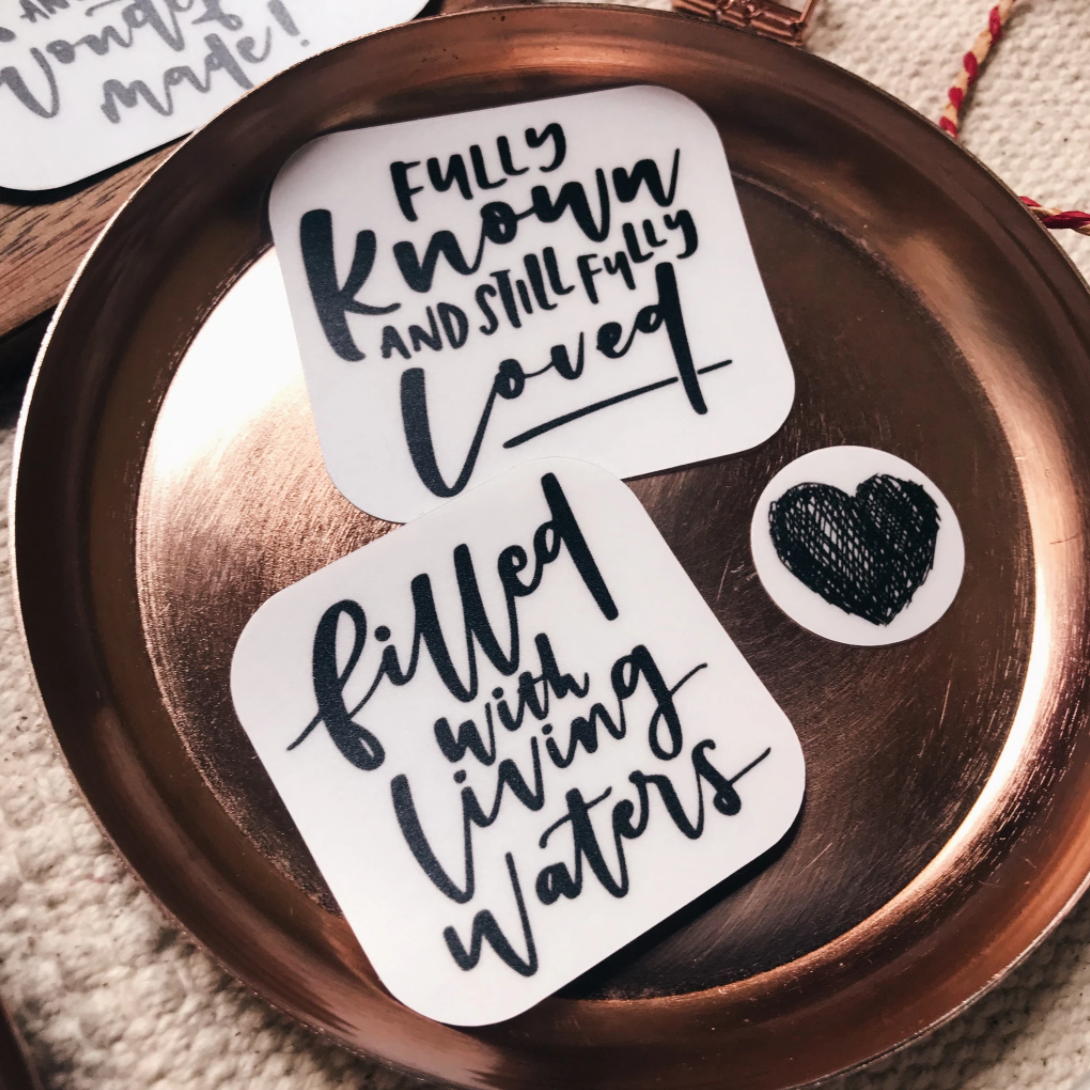 AND
Wonder
made!
FULLY
Known
AND STILL FULLY
Loved
filled
with
living
waters